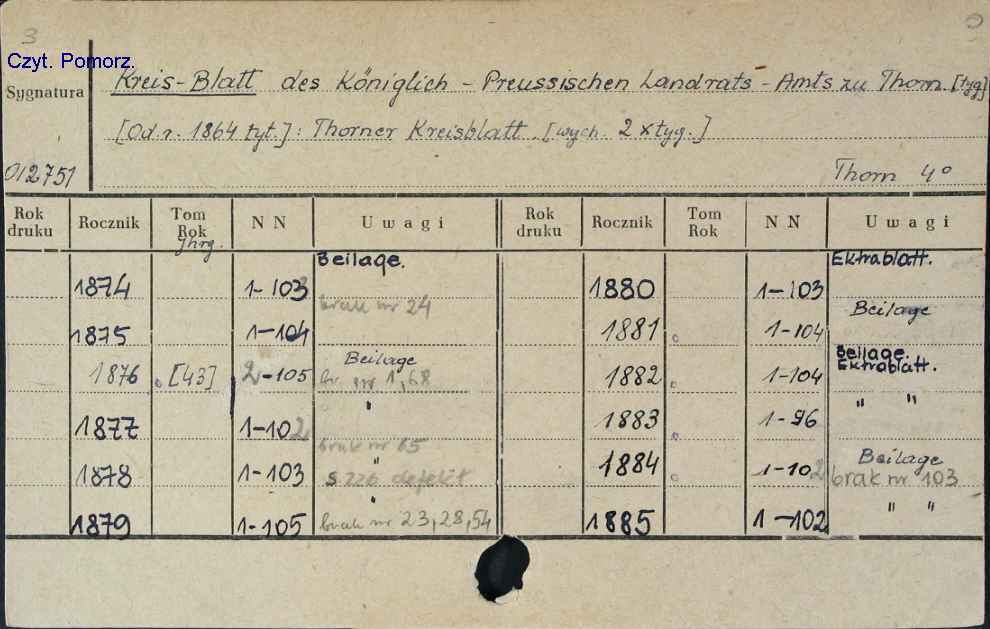 3
Czyt. Pomorz.
Sygnatura
Kreis-Blatt des Königlich - Preussischen Landrats - Amts zu Thorn. [tyg]
[Od r. 1864 tyt.]: Thorner Kreisblatt. [wych. 2 x tyg.]
012751
Thorn 4°
Rok druku | Rocznik | Tom Rok Jhrg. | NN | Uwagi | Rok druku | Rocznik | Tom Rok | NN | Uwagi
1874 | 1-103 | Beilage. brak nr 24 | 1880 | 1-103 | Ektrablatt.
1875 | 1-104 | 1881 | 1-104 | Beilage
1876 | [43] | 2-105 | Beilage br. nr 1,68 | 1882 | 1-104 | Beilage. Ektrablatt.
1877 | 1-102 | " brak nr 65 | 1883 | 1-96 | " "
1878 | 1-103 | " s 226 defekt | 1884 | 1-102 | Beilage brak nr 103
1879 | 1-105 | " brak nr 23,28,54 | 1885 | 1-102 | " "